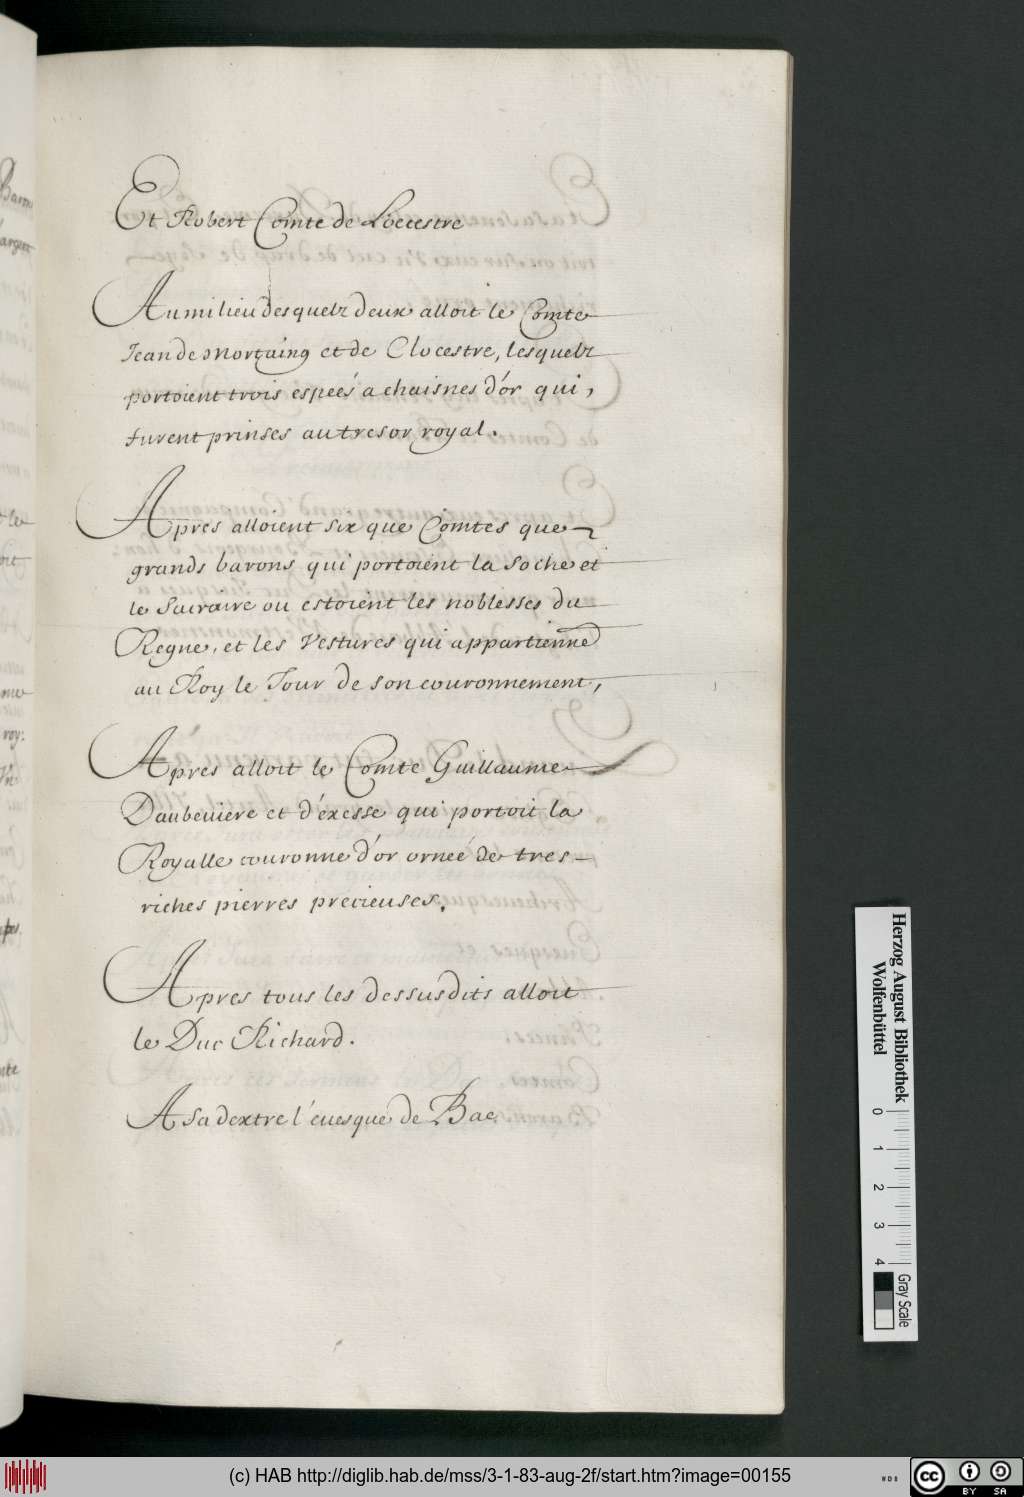 Et Robert Comte de Loecestre
Au milieu desquelz deux alloit le Comte
Jean de Mortaing et de Clocestre, lesquelz
portoient trois espeés a chaisnes d'or qui,
furent prinses au tresor royal.
Apres alloient six que Comtes que
grands barons qui portoient la soche et
le Sacraire ou estoient les noblesses du
Regne, et les Vestures qui appartienned
au Roy le Jour de son couronnement,
Apres alloit le Comte Guillaume
Daubeuiere et d'éxesse qui portoit la
Royalle couronne d'or orneé de tres-
riches pierres precieuses.
Apres tous les dessusdits alloit
le Duc Richard.
A sa dextre l'euesque de Bae
Herzog August Bibliothek
Wolfenbüttel
0 1 2 3 4
Gray Scale
(c) HAB http://diglib.hab.de/mss/3-1-83-aug-2f/start.htm?image=00155
cc BY SA